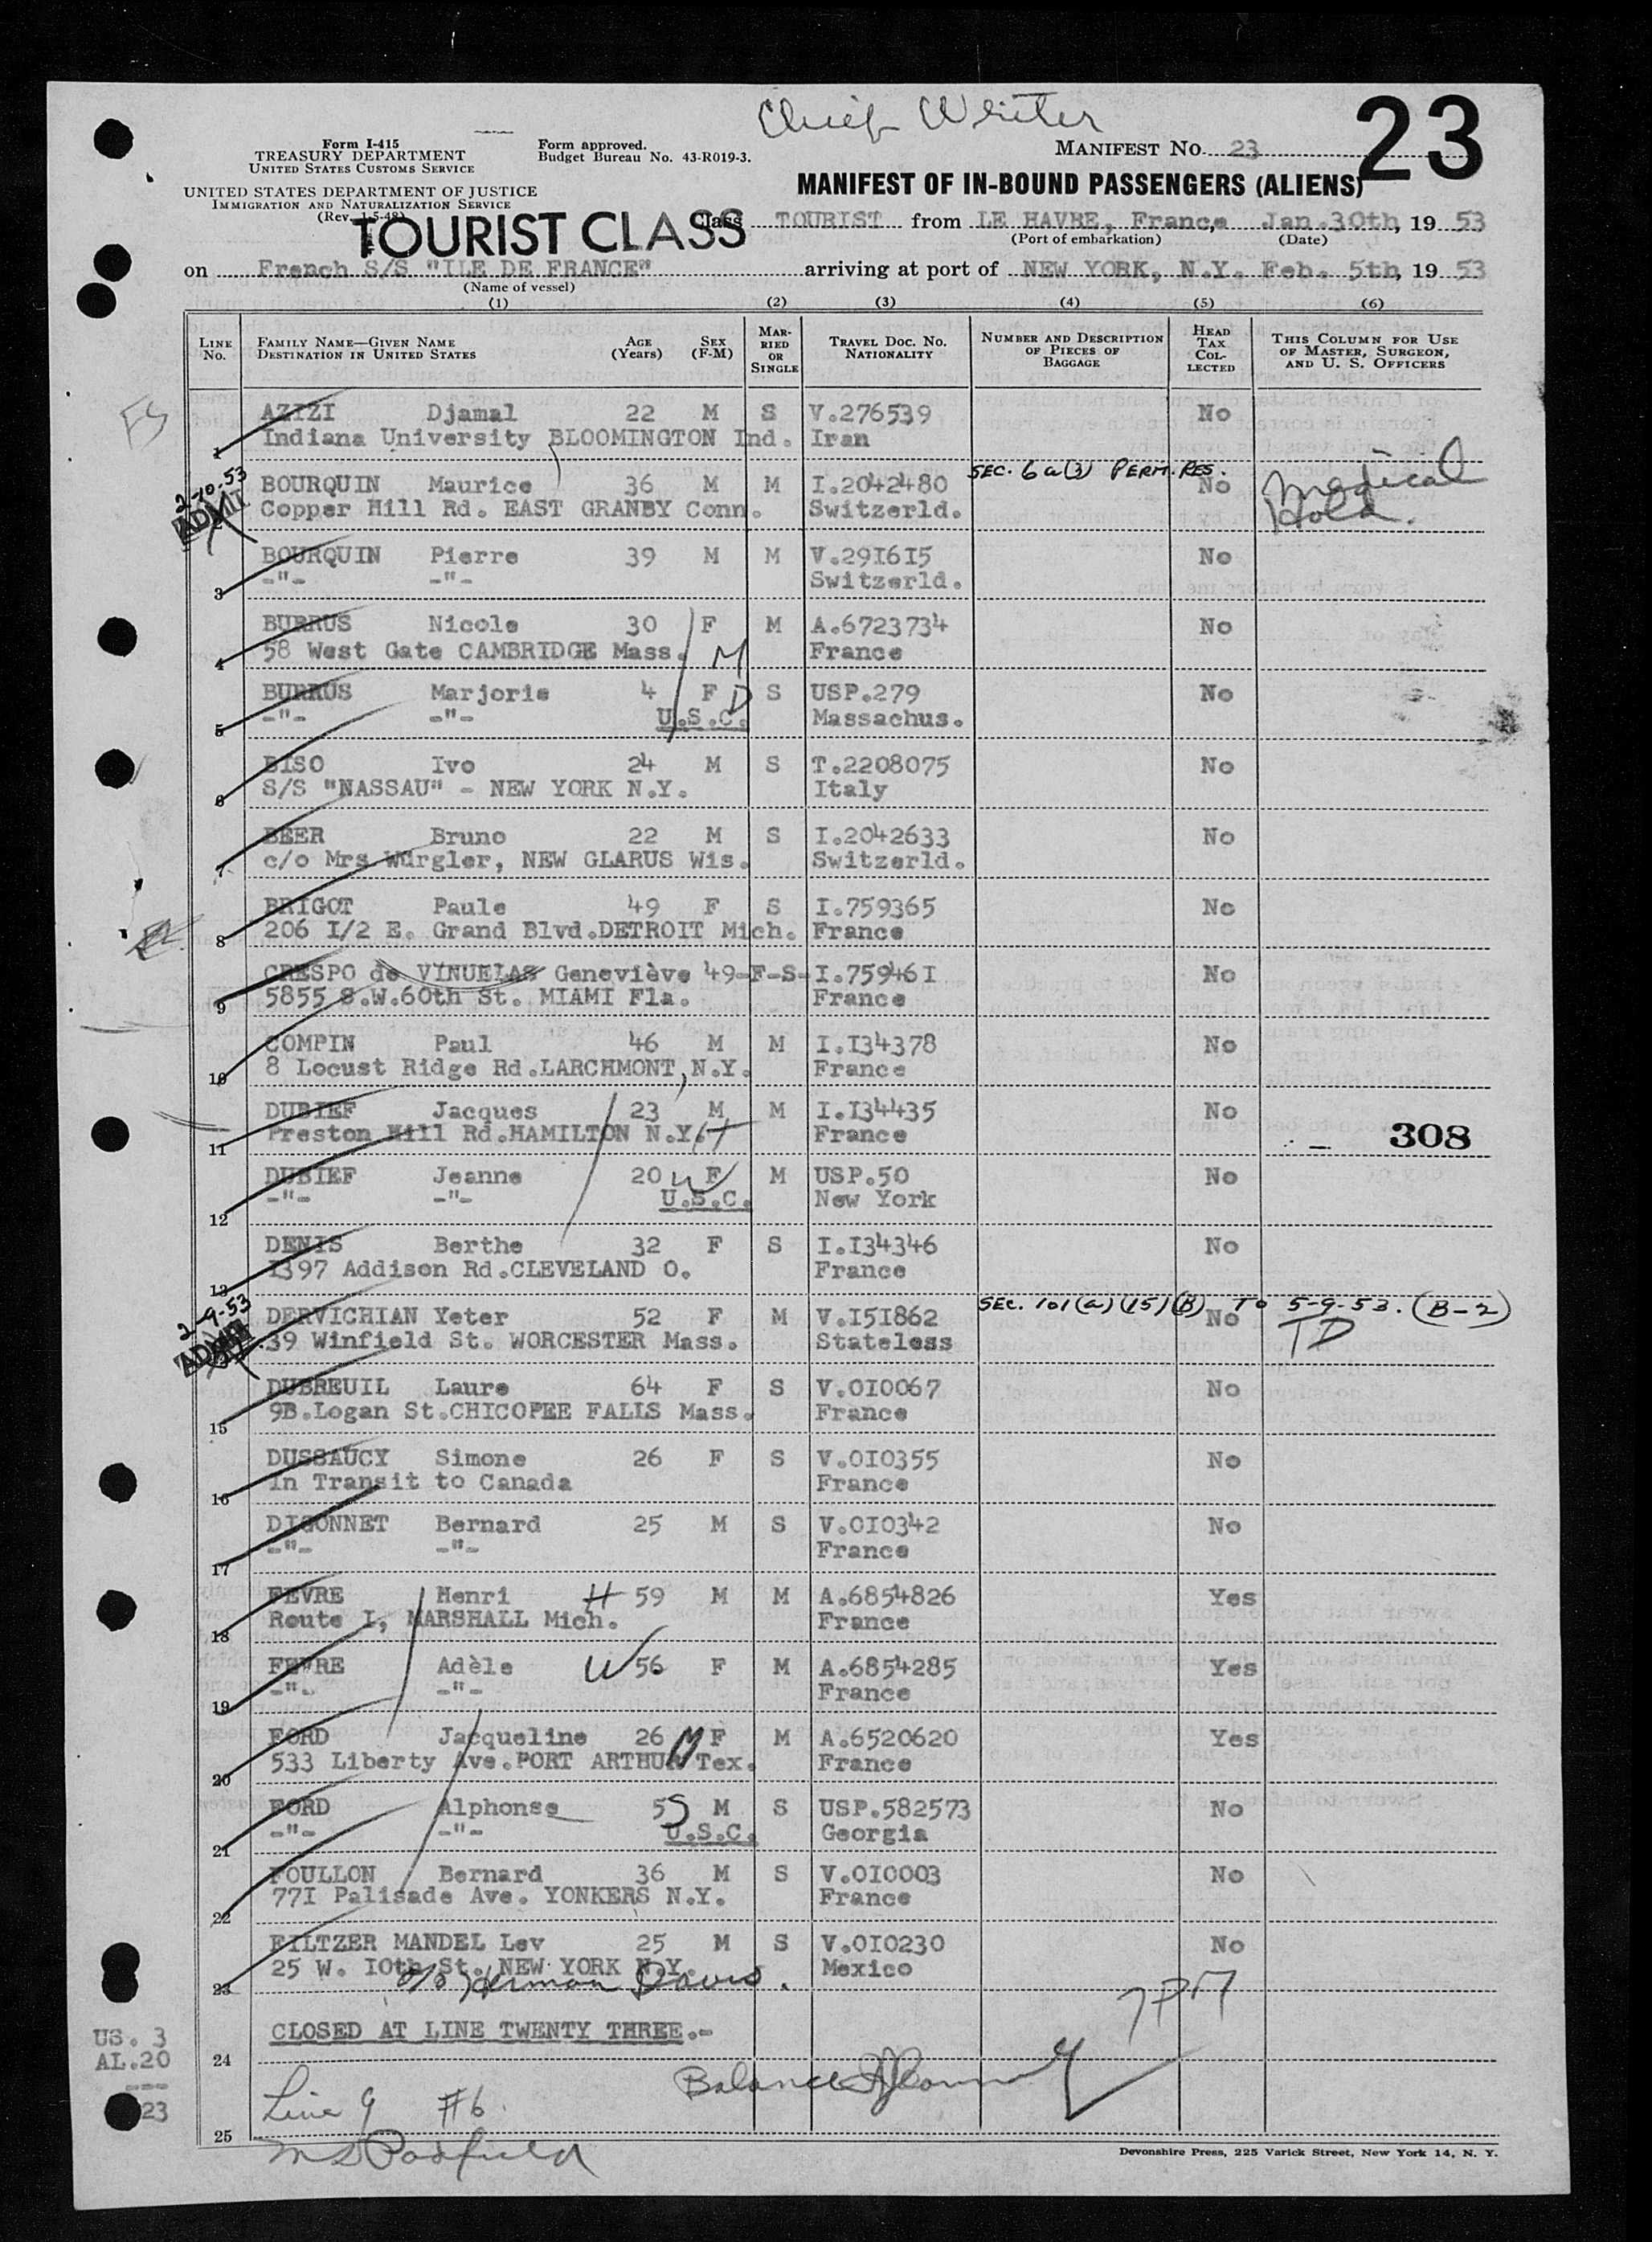 Chief Writer
23
Form I-415
TREASURY DEPARTMENT
UNITED STATES CUSTOMS SERVICE
Form approved.
Budget Bureau No. 43-R019-3.
MANIFEST NO. 23
UNITED STATES DEPARTMENT OF JUSTICE
IMMIGRATION AND NATURALIZATION SERVICE
(Rev. 1-5-48)
MANIFEST OF IN-BOUND PASSENGERS (ALIENS)
TOURIST CLASS
Class TOURIST from LE HAVRE, France, Jan.30th, 19 53
(Port of embarkation) (Date)
on French S/S "ILE DE FRANCE" arriving at port of NEW YORK, N.Y. Feb. 5th, 19 53
(Name of vessel)
(1) (2) (3) (4) (5) (6)
LINE NO. FAMILY NAME—GIVEN NAME DESTINATION IN UNITED STATES AGE (Years) SEX (F-M) MARRIED OR SINGLE TRAVEL DOC. NO. NATIONALITY NUMBER AND DESCRIPTION OF PIECES OF BAGGAGE HEAD TAX COLLECTED THIS COLUMN FOR USE OF MASTER, SURGEON, AND U. S. OFFICERS
AZIZI Djamal 22 M S V.276539 No
1 Indiana University BLOOMINGTON Ind. Iran
2-10-53 SEC. 6a(3) PERM. RES.
ADMIT BOURQUIN Maurice 36 M M I.2042480 No Medical
Copper Hill Rd. EAST GRANBY Conn. Switzerld. Hold.
BOURQUIN Pierre 39 M M V.291615 No
3 -"- -"- Switzerld.
BURRUS Nicole 30 F M A.6723734 No
4 58 West Gate CAMBRIDGE Mass. M France
BURRUS Marjorie 4 F D S USP.279 No
5 -"- -"- U.S.C. Massachus.
BISO Ivo 24 M S T.2208075 No
6 S/S "NASSAU" - NEW YORK N.Y. Italy
BEER Bruno 22 M S I.2042633 No
7 c/o Mrs Würgler, NEW GLARUS Wis. Switzerld.
BRIGOT Paule 49 F S I.759365 No
8 206 I/2 E. Grand Blvd.DETROIT Mich. France
CRESPO de VINUELAS Geneviève 49-F-S-I.75946I No
9 5855 S.W.60th St. MIAMI Fla. France
COMPIN Paul 46 M M I.I34378 No
10 8 Locust Ridge Rd.LARCHMONT,N.Y. France
DUBIEF Jacques 23 M M I.I34435 No
11 Preston Hill Rd.HAMILTON N.Y. H France 308
DUBIEF Jeanne 20 W F M USP.50 No
12 -"- -"- U.S.C. New York
DENIS Berthe 32 F S I.I34346 No
13 I397 Addison Rd.CLEVELAND O. France
2-9-53 SEC. 101(a)(15)(B) TO 5-9-53. (B-2)
DERVICHIAN Yeter 52 F M V.I5I862 No TD
39 Winfield St. WORCESTER Mass. Stateless
DUBREUIL Laure 64 F S V.0I0067 No
15 9B.Logan St.CHICOPEE FALLS Mass. France
DUSSAUCY Simone 26 F S V.0I0355 No
16 In Transit to Canada France
DIGONNET Bernard 25 M S V.0I0342 No
17 -"- -"- France
FEVRE Henri H 59 M M A.6854826 Yes
18 Route I, MARSHALL Mich. France
FEVRE Adèle W 56 F M A.6854285 Yes
19 -"- -"- France
FORD Jacqueline 26 M F M A.6520620 Yes
20 533 Liberty Ave.PORT ARTHUR Tex. France
FORD Alphonse 5 S M S USP.582573 No
21 -"- -"- U.S.C. Georgia
FOULLON Bernard 36 M S V.0I0003 No
22 77I Palisade Ave. YONKERS N.Y. France
FILTZER MANDEL Lev 25 M S V.0I0230 No
23 25 W. I0th St. NEW YORK N.Y. Mexico
c/o Herman Davis.
7PM
CLOSED AT LINE TWENTY THREE.-
US. 3
AL.20
23
24
Balance
Line 9 #6
25
Devonshire Press, 225 Varick Street, New York 14, N. Y.